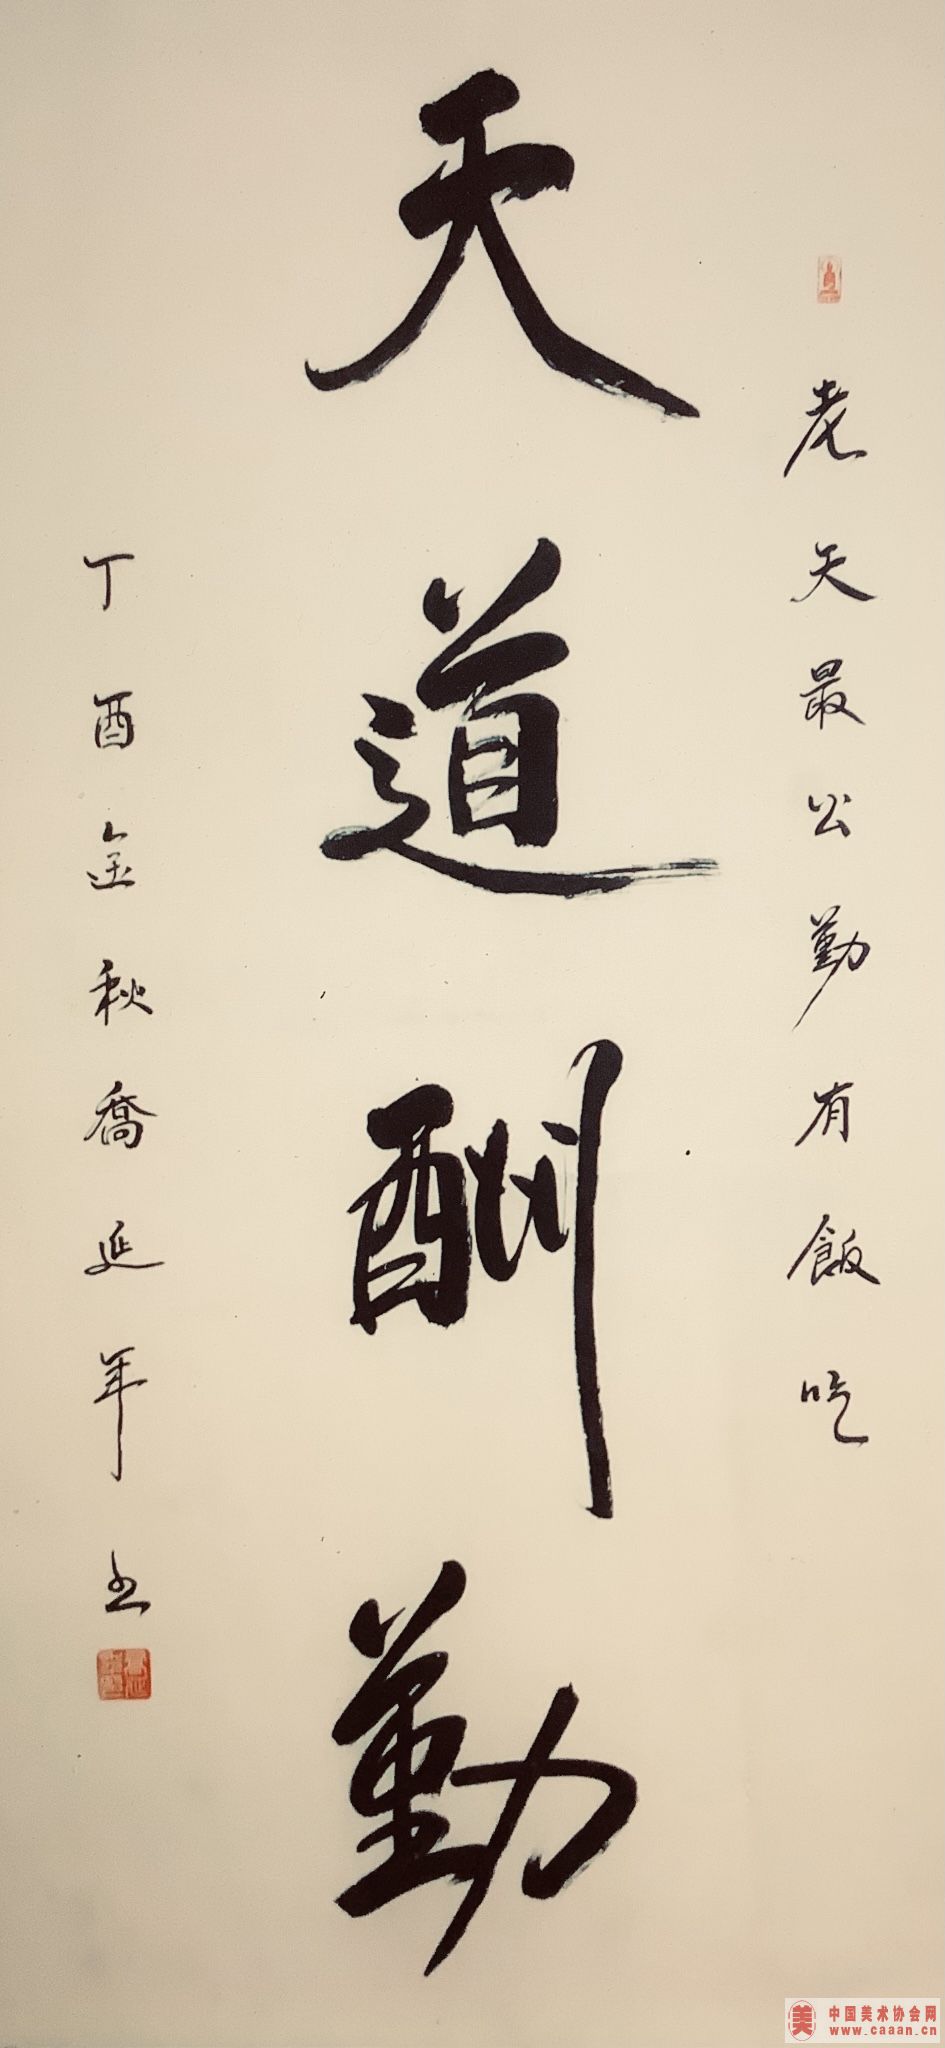 老天最公勤有飯吃
天道酬勤
丁酉金秋喬延年书
中国美术协会网
www.caaan.cn